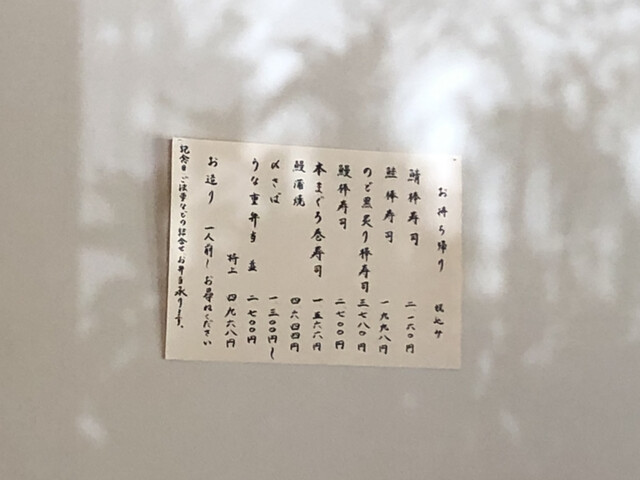 お持ち帰り 税込み
鯖棒寿司 二一六〇円
鮭棒寿司 一九九八円
のど黒炙り棒寿司 三七八〇円
鰻棒寿司 二七〇〇円
本まぐろ巻寿司 一五六六円
鰻蒲焼 四六四四円
〆さば 一三〇〇円〜
うな重弁当 並 二七〇〇円
特上 四九六八円
お造り 一人前〜お尋ねください
記念日・法事などの詰合せお弁当承ります。